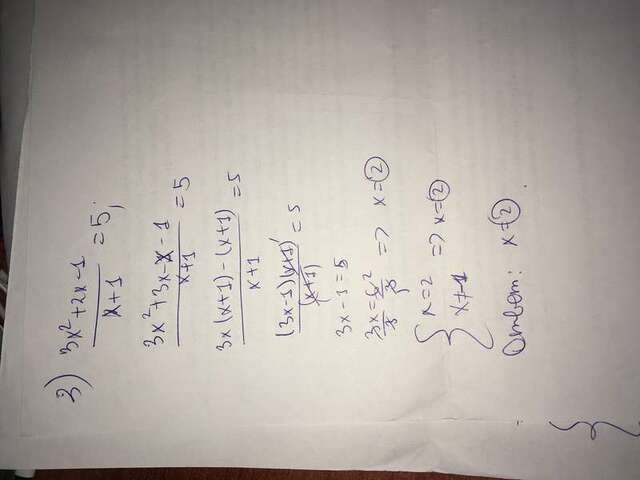 3) 3x²+2x-1 / x+1 = 5;
3x²+3x-x-1 / x+1 = 5
3x(x+1)-(x+1) / x+1 = 5
(3x-1)(x+1) / (x+1) = 5
3x-1=5
3x/3 = 6/3 => x=2
{ x=2 => x=2
x≠-1
Ответ: x=2.